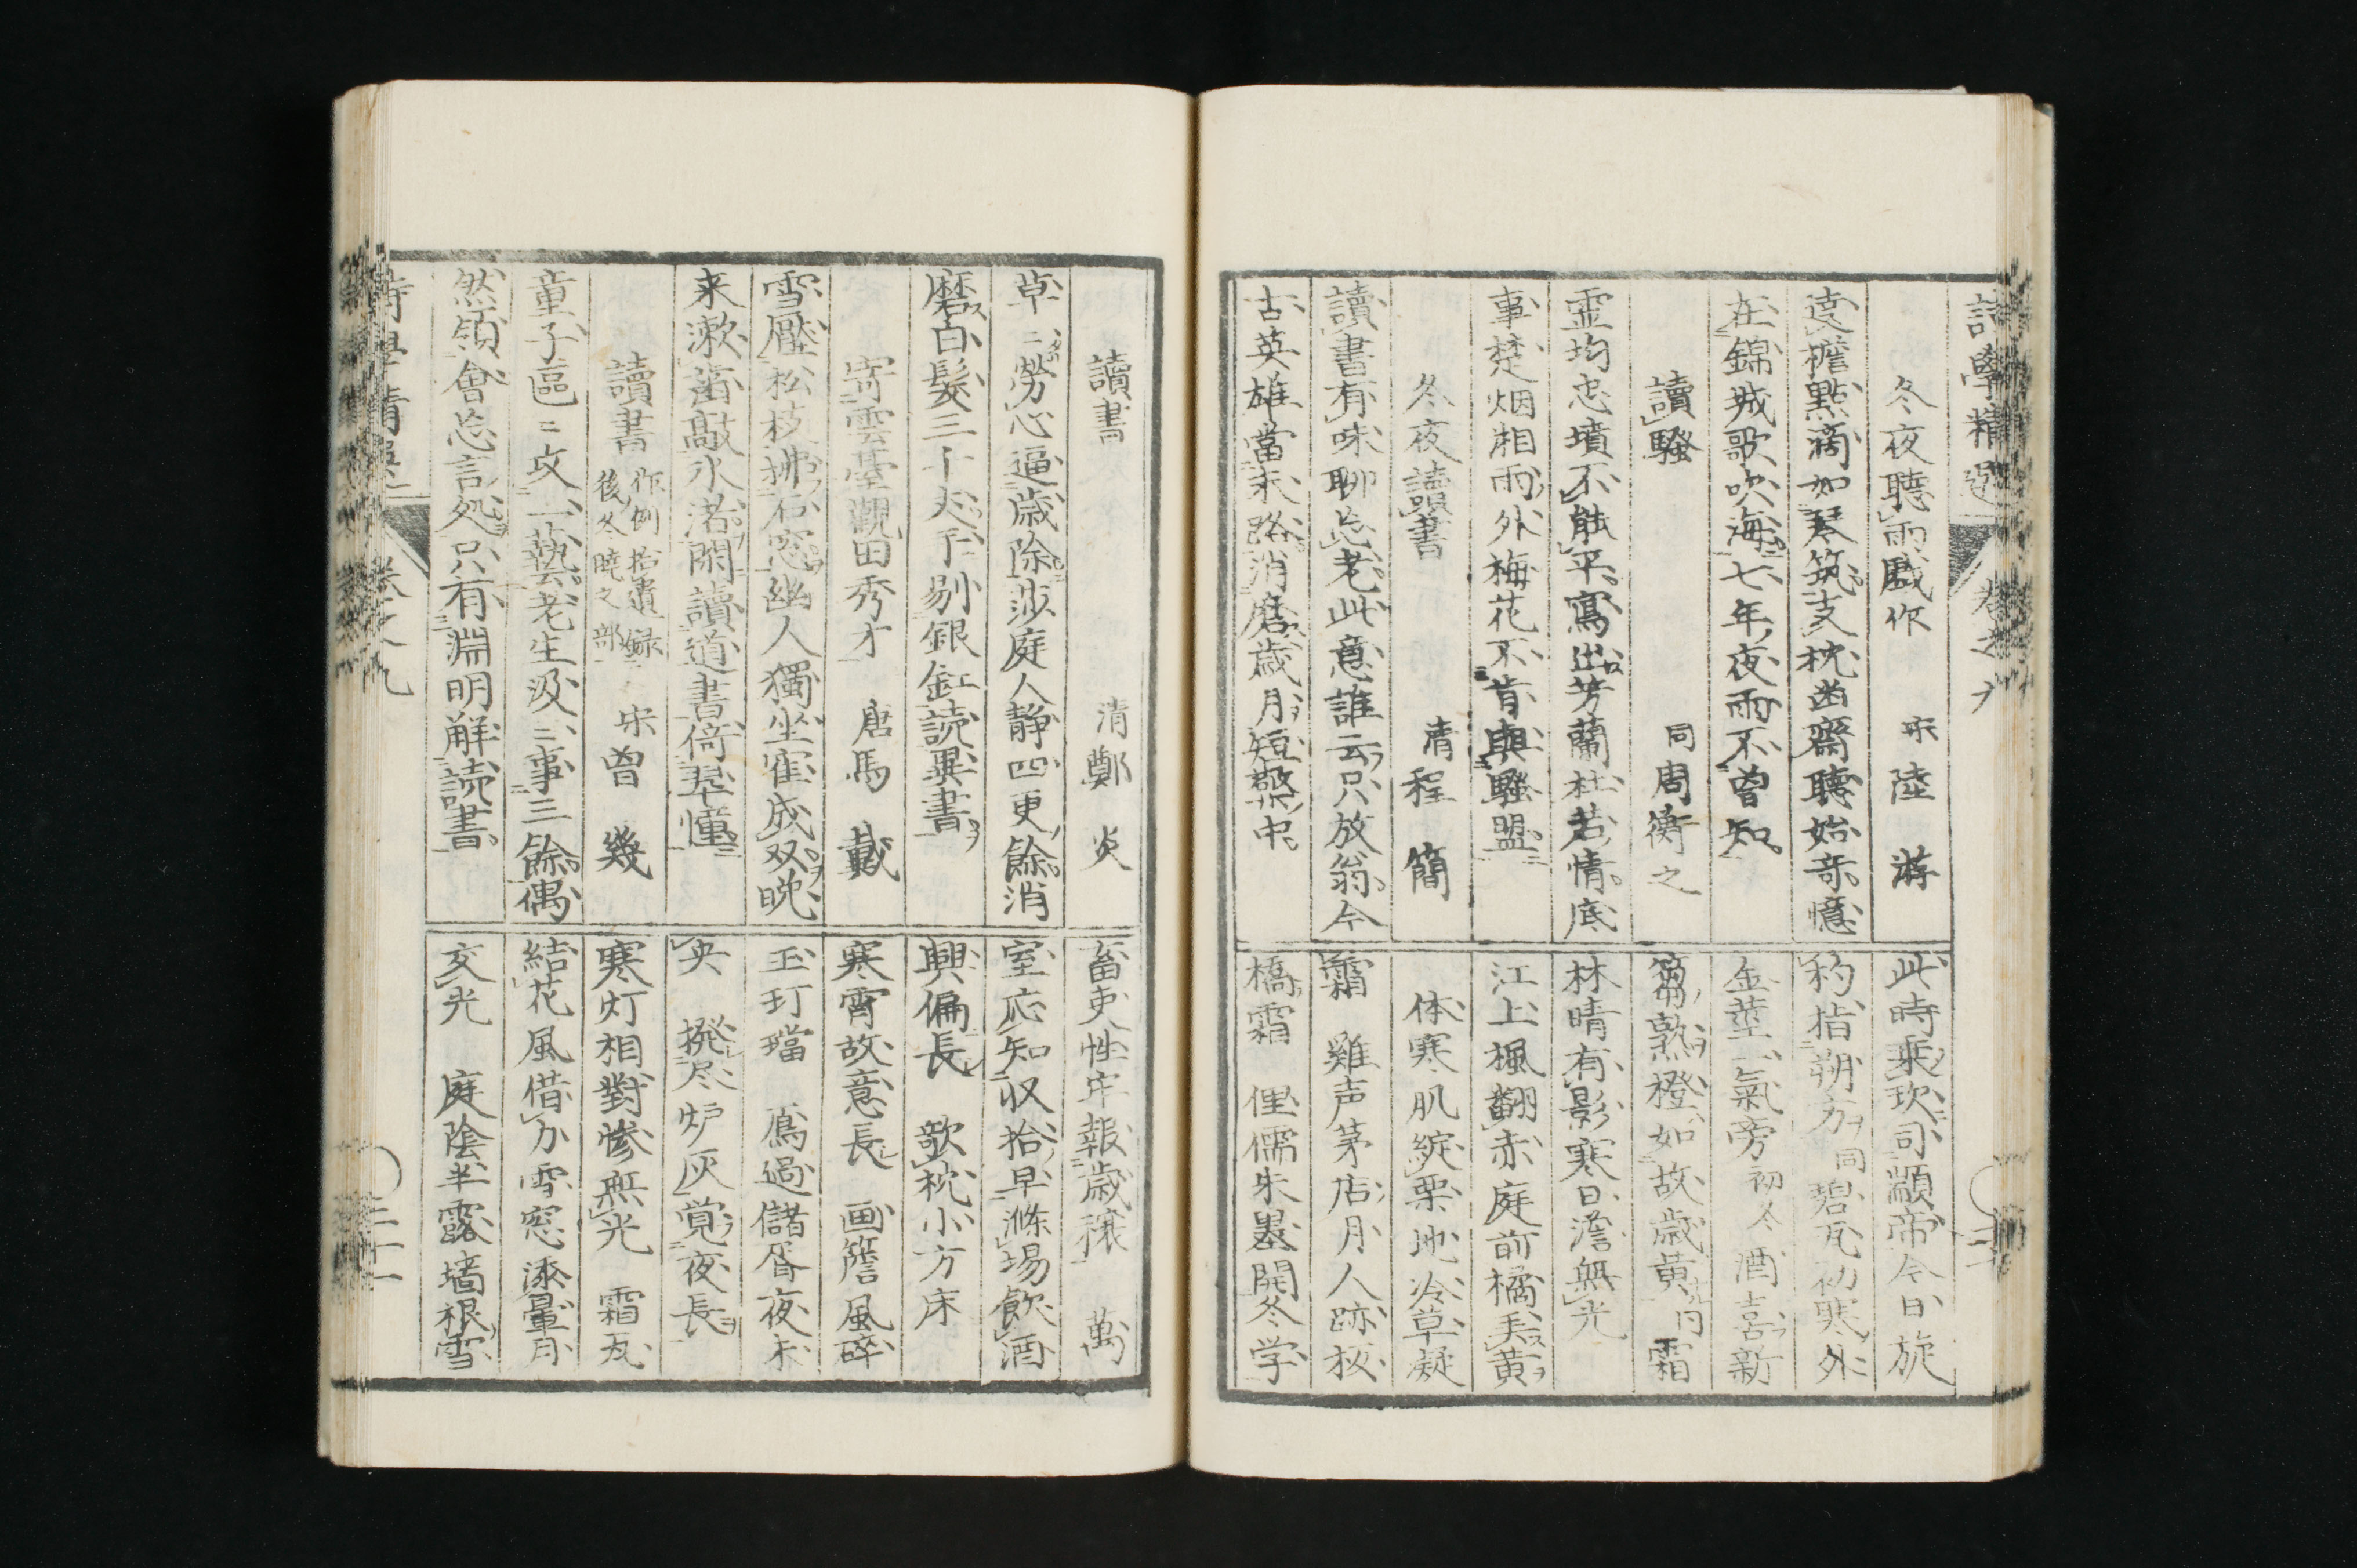 詩學精選 卷之九
冬夜聽雨戲作 宋 陸 游
遶檐點滴如琴筑支枕幽齋聽始奇憶
在錦城歌吹海七年夜雨不曽知
讀騷 同 周衡之
霊均忠墳不能平寫出芳蘭杜若情底
事楚烟湘雨外梅花不肯與騷盟
冬夜讀書 清 程 簡
讀書有味聊忘老此意誰云只放翁今
古英雄當末路消磨歳月短檠中
此時乘坎司顓帝今日旋
杓指朔方 同 碧瓦初寒外
金莖一氣旁 初冬 酒喜新
篘熟橙如故歳黄 十月 霜
林晴有影寒日澹無光
江上楓翻赤庭前橘美黄
体寒肌綻栗地冷草凝
霜 雞声茅店月人跡板
橋霜 俚儒朱墨開冬学
讀書 清 鄭 炎
草〻勞心逼歳除莎庭人静四更餘消
磨白髮三千丈手剔銀缸読異書
寄雲臺觀田秀才 唐 馬 戴
雪壓松枝拂石窓幽人獨坐寉成双晩
来漱齒敲氷渚閑讀道書倚翠幢
讀書 作例拾遺録後冬曉之部 宋 曽 幾
童子區〻攻一藝老生汲〻事三餘偶
然領會忘言処只有淵明解読書
畜吏性牢報歳穣 萬
室応知収拾早滌場飲酒
興偏長 欹枕小方床
寒宵故意長 画簷風碎
玉玎璫 鳫過儲胥夜未
央 撥尽炉灰覚夜長
寒灯相對惨無光 霜瓦
結花風借力雪窓漆暈月
交光 庭陰半露墻根雪
詩學精選 卷之九 〇二十一